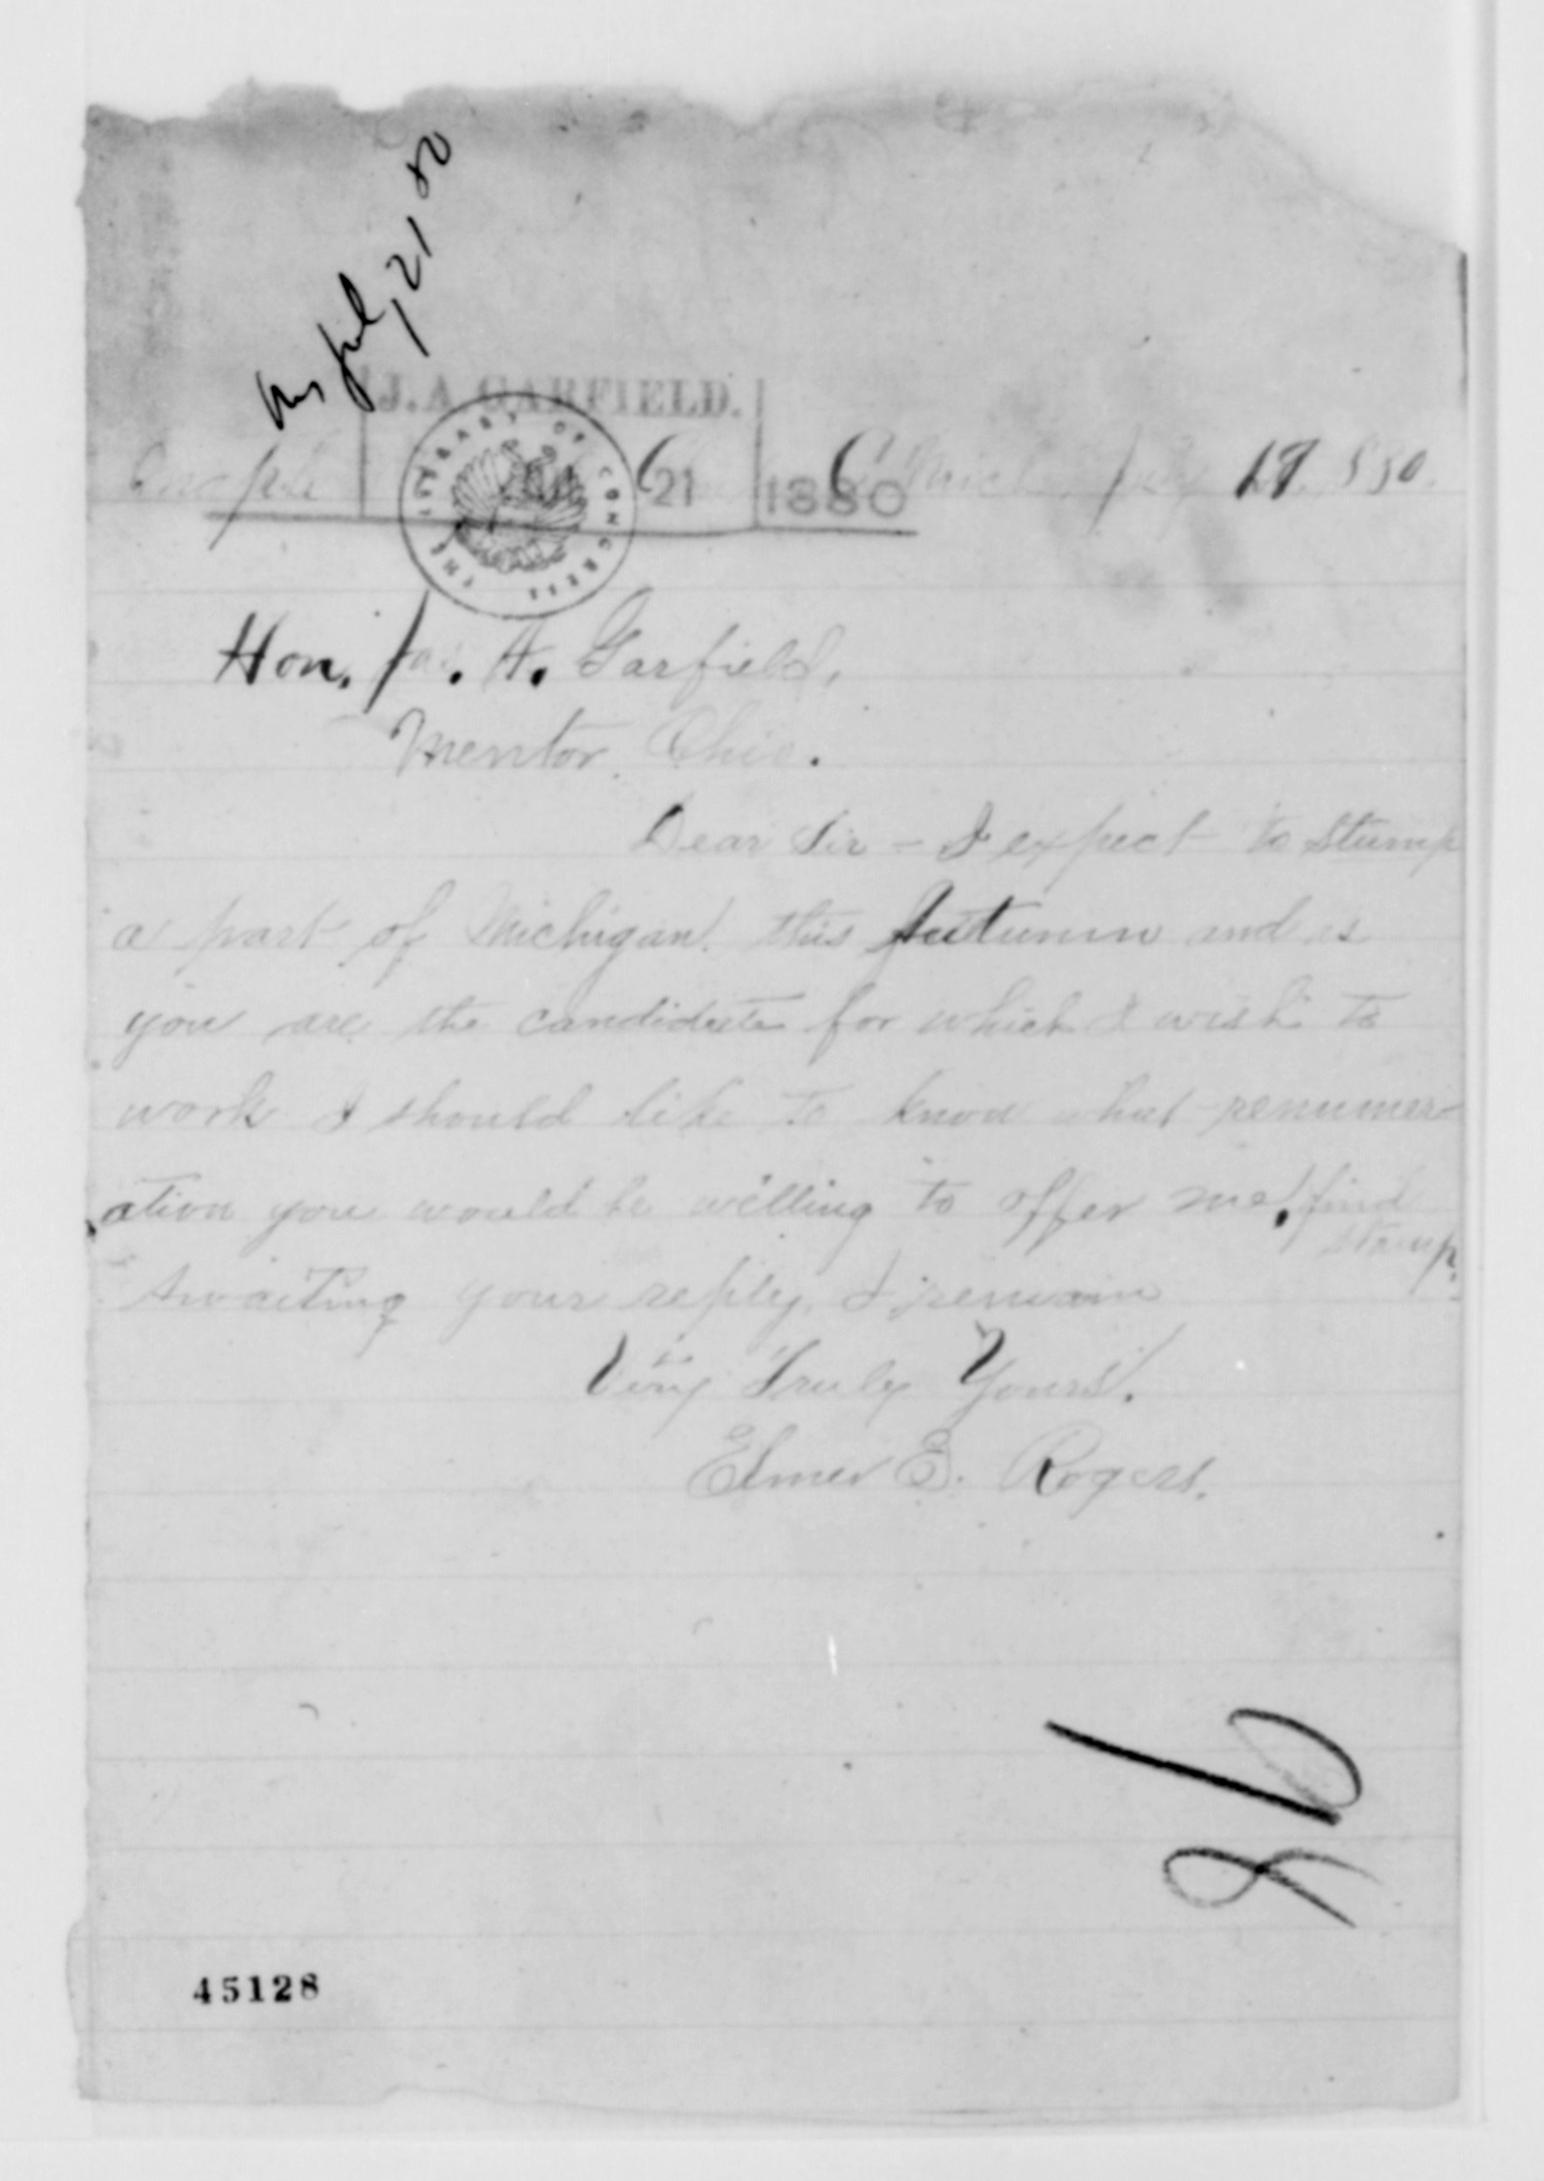 Ans July 21 80
J. A. GARFIELD.
21 1880
THE LIBRARY OF CONGRESS
Mich. July 19. 1880.
Hon. Jas. A. Garfield,
Mentor, Ohio.
Dear Sir – I expect to stump
a part of Michigan this Autumn and as
you are the candidate for which I wish to
work I should like to know what renumer-
ation you would be willing to offer me. find
stamp.
Awaiting your reply, I remain
Very Truly Yours.
Elmer E. Rogers.
45128